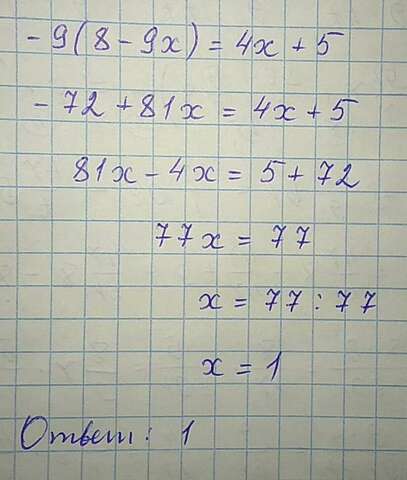 - 9(8 - 9x) = 4x + 5
- 72 + 81x = 4x + 5
81x - 4x = 5 + 72
77x = 77
x = 77 : 77
x = 1
Ответ: 1